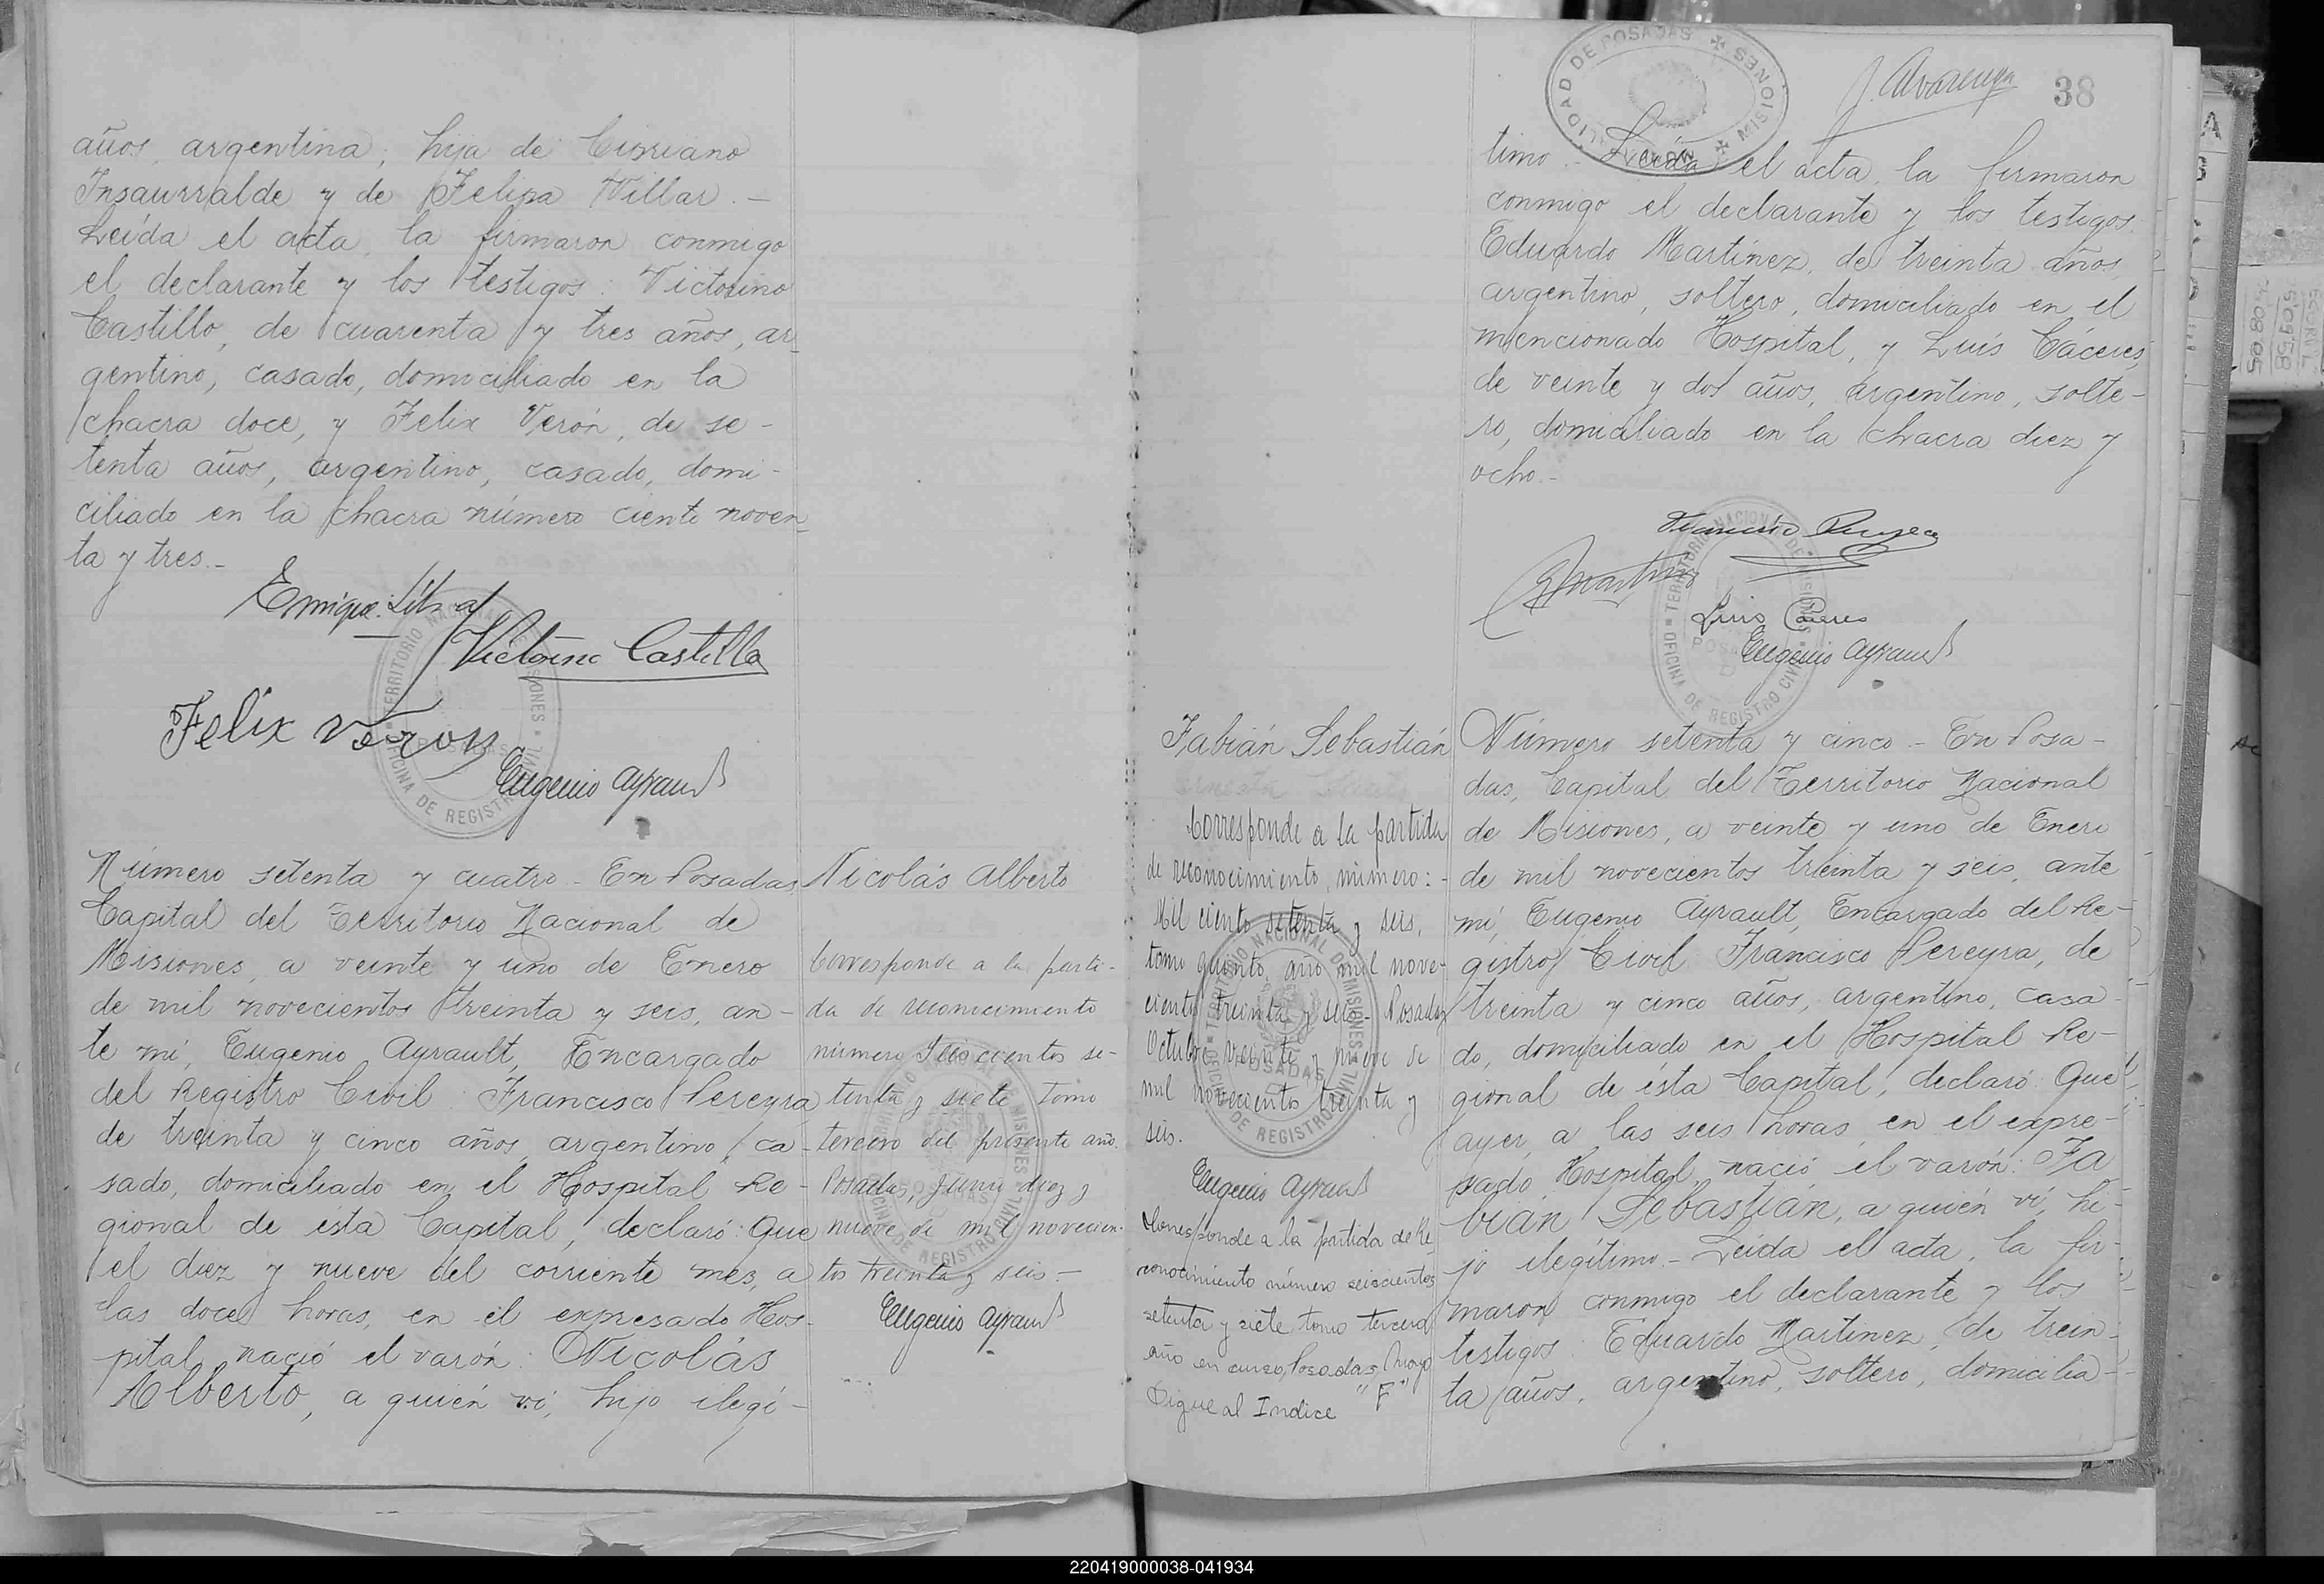 años, argentina; hija de Cipriano
Insaurralde y de Felipa Villar. —
Leída el acta, la firmaron conmigo
el declarante y los testigos: Victorino
Castillo, de cuarenta y tres años, ar-
gentino, casado, domiciliado en la
chacra doce, y Felix Verón, de se-
tenta años, argentino, casado, domi-
ciliado en la chacra número ciento noven-
ta y tres.-
Enrique
Victorino Castillo
Felix Veron
Eugenio Ayrault
Número setenta y cuatro - En Posadas,
Capital del Territorio Nacional de
Misiones, a veinte y uno de Enero
de mil novecientos treinta y seis, an-
te mí, Eugenio Ayrault, Encargado
del Registro Civil: Francisco Pereyra,
de treinta y cinco años, argentino, ca-
sado, domiciliado en el Hospital Re-
gional de ésta Capital, declaró: Que
el diez y nueve del corriente mes, a
las doce horas, en el expresado Hos-
pital, nació el varón: Nicolás
Alberto, a quién ví, hijo ilegí-
Nicolás Alberto
Corresponde a la parti-
da de reconocimiento
número Seiscientos se-
tenta y siete Tomo
tercero del presente año.
Posadas, Junio diez y
nueve de mil novecien-
tos treinta y seis.-
Eugenio Ayrault
MUNICIPALIDAD DE POSADAS MISIONES
J. Alvarenga
38
timo.- Leída el acta, la firmaron
conmigo el declarante y los testigos:
Eduardo Martínez, de treinta años,
argentino, soltero, domiciliado en el
mencionado Hospital, y Luís Cáceres,
de veinte y dos años, argentino, solte-
ro, domiciliado en la chacra diez y
ocho.-
Francisco Pereyra
EMartinez
Luis Caceres
Eugenio Ayrault
TERRITORIO NACIONAL DE MISIONES
OFICINA DE REGISTRO CIVIL
POSADAS
Fabián Sebastián
Corresponde a la partida
de reconocimiento, número: -
Mil ciento setenta y seis,
tomo quinto, año mil nove-
cientos treinta y seis- Posadas
Octubre veinte y nueve de
mil novecientos treinta y
seis.
Eugenio Ayrault
Corresponde a la partida de Re
conocimiento número seiscientos
setenta y siete, tomo tercero
año en curso, Posadas, Mayo
Sigue al Indice "F"
Número setenta y cinco - En Posa-
das, Capital del Territorio Nacional
de Misiones, a veinte y uno de Enero
de mil novecientos treinta y seis, ante
mí, Eugenio Ayrault, Encargado del Re-
gistro Civil: Francisco Pereyra, de
treinta y cinco años, argentino, casa-
do, domiciliado en el Hospital Re-
gional de ésta Capital, declaró: Que
ayer, a las seis horas, en el expre-
sado Hospital, nació el varón: Fa
bián Sebastián, a quién ví, hi-
jo ilegítimo.- Leída el acta, la fir-
maron conmigo el declarante y los
testigos: Eduardo Martínez, de trein-
ta años, argentino, soltero, domicilia-
220419000038-041934